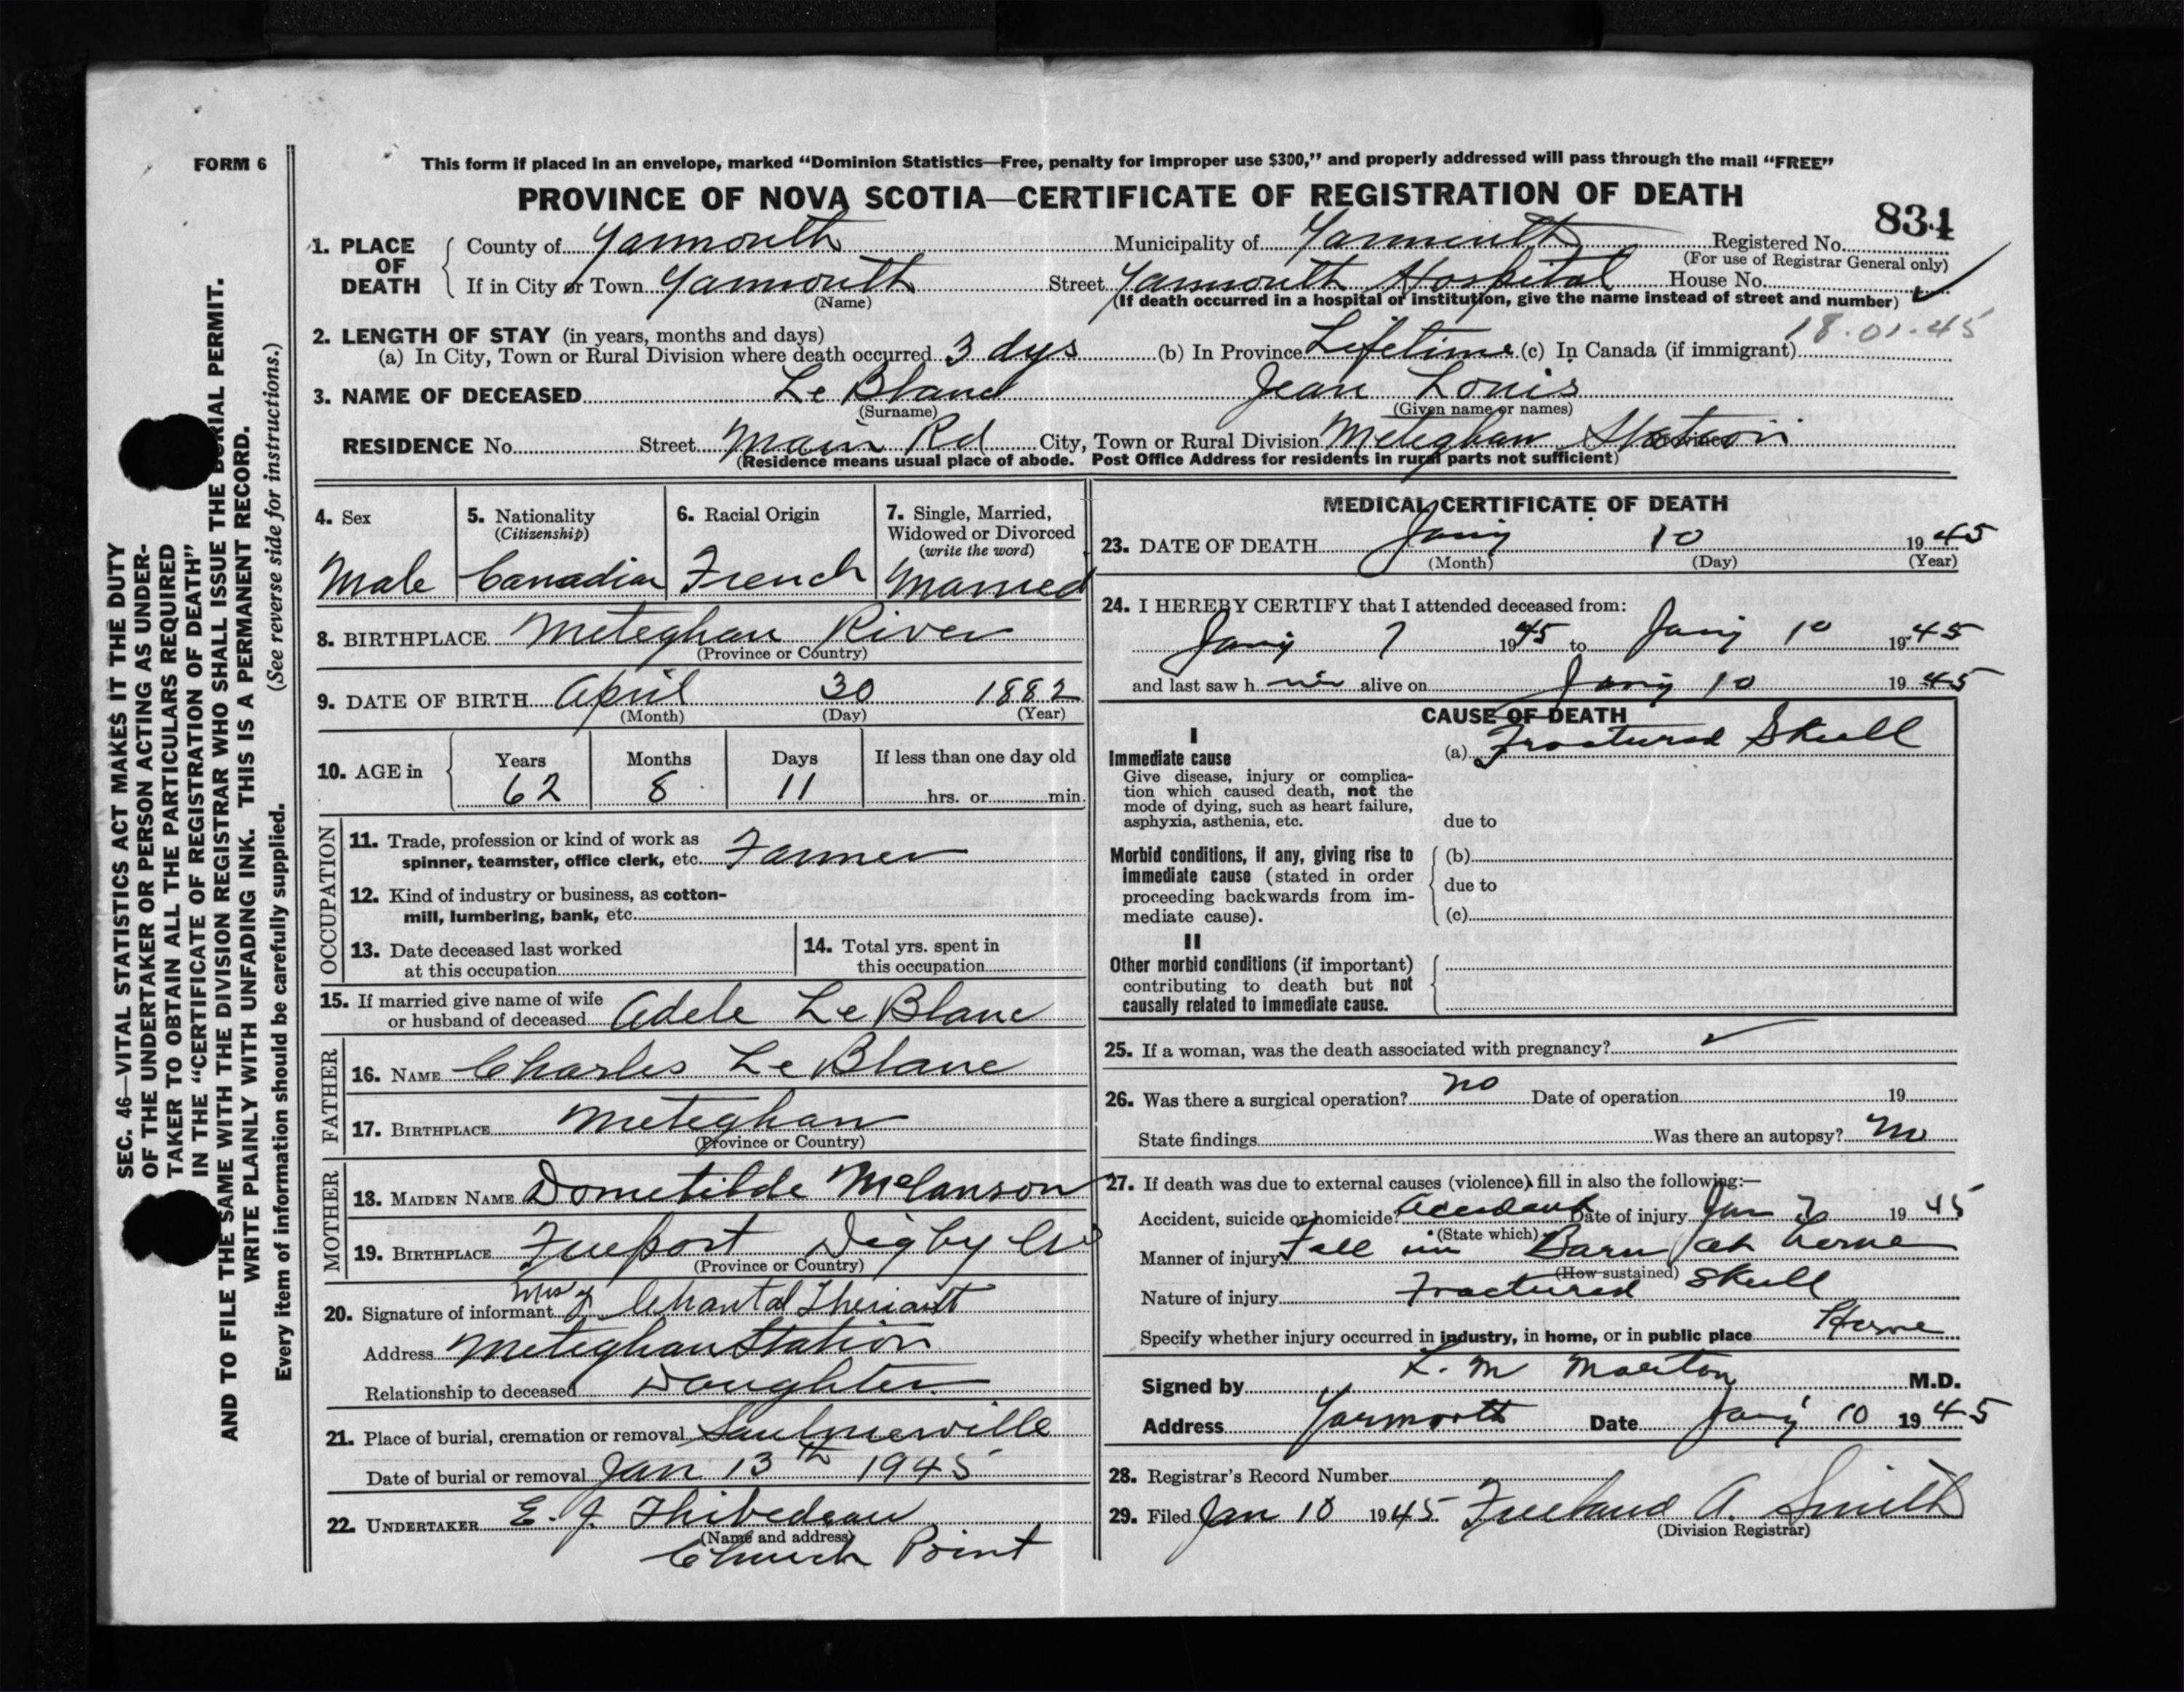 FORM 6
This form if placed in an envelope, marked “Dominion Statistics—Free, penalty for improper use $300,” and properly addressed will pass through the mail “FREE”
PROVINCE OF NOVA SCOTIA—CERTIFICATE OF REGISTRATION OF DEATH
834
1. PLACE OF DEATH County of Yarmouth Municipality of Yarmouth Registered No.
(For use of Registrar General only)
If in City or Town Yarmouth Street Yarmouth Hospital House No.
(Name) (If death occurred in a hospital or institution, give the name instead of street and number)
18.01.45
2. LENGTH OF STAY (in years, months and days)
(a) In City, Town or Rural Division where death occurred 3 dys (b) In Province Lifetime (c) In Canada (if immigrant)
3. NAME OF DECEASED Le Blanc Jean Louis
(Surname) (Given name or names)
RESIDENCE No. Street Main Rd City, Town or Rural Division Meteghan Station
(Residence means usual place of abode. Post Office Address for residents in rural parts not sufficient)
4. Sex 5. Nationality 6. Racial Origin 7. Single, Married,
(Citizenship) Widowed or Divorced
(write the word)
Male Canadian French Married
8. BIRTHPLACE Meteghan River
(Province or Country)
9. DATE OF BIRTH April 30 1882
(Month) (Day) (Year)
10. AGE in Years Months Days If less than one day old
62 8 11 hrs. or min.
OCCUPATION
11. Trade, profession or kind of work as
spinner, teamster, office clerk, etc. Farmer
12. Kind of industry or business, as cotton-
mill, lumbering, bank, etc.
13. Date deceased last worked 14. Total yrs. spent in
at this occupation this occupation
15. If married give name of wife
or husband of deceased Adele Le Blanc
FATHER
16. NAME Charles Le Blanc
17. BIRTHPLACE Meteghan
(Province or Country)
MOTHER
18. MAIDEN NAME Dometilde Melanson
19. BIRTHPLACE Freeport Digby Co
(Province or Country)
20. Signature of informant Mrs Chantal Theriault
Address Meteghan Station
Relationship to deceased Daughter
21. Place of burial, cremation or removal Saulnierville
Date of burial or removal Jan 13th 1945
22. UNDERTAKER E. J. Thibedeau
(Name and address)
Church Point
MEDICAL CERTIFICATE OF DEATH
23. DATE OF DEATH Jany 10 1945
(Month) (Day) (Year)
24. I HEREBY CERTIFY that I attended deceased from:
Jany 7 1945 to Jany 10 1945
and last saw h im alive on Jany 10 1945
CAUSE OF DEATH
I
Immediate cause (a) Fractured Skull
Give disease, injury or complica-
tion which caused death, not the
mode of dying, such as heart failure,
asphyxia, asthenia, etc. due to
Morbid conditions, if any, giving rise to (b)
immediate cause (stated in order
proceeding backwards from im- due to
mediate cause). (c)
II
Other morbid conditions (if important)
contributing to death but not
causally related to immediate cause.
25. If a woman, was the death associated with pregnancy?
26. Was there a surgical operation? no Date of operation 19
State findings Was there an autopsy? no
27. If death was due to external causes (violence) fill in also the following:—
Accident, suicide or homicide? Accident Date of injury Jan 1945
(State which)
Manner of injury Fall in Barn at home
(How sustained)
Nature of injury Fractured Skull
Specify whether injury occurred in industry, in home, or in public place Home
Signed by L. M. Morton M.D.
Address Yarmouth Date Jany 10 1945
28. Registrar's Record Number
29. Filed Jan 10 1945 Freeland A. Smith
(Division Registrar)
SEC. 46—VITAL STATISTICS ACT MAKES IT THE DUTY
OF THE UNDERTAKER OR PERSON ACTING AS UNDER-
TAKER TO OBTAIN ALL THE PARTICULARS REQUIRED
IN THE “CERTIFICATE OF REGISTRATION OF DEATH”
AND TO FILE THE SAME WITH THE DIVISION REGISTRAR WHO SHALL ISSUE THE BURIAL PERMIT.
WRITE PLAINLY WITH UNFADING INK. THIS IS A PERMANENT RECORD.
Every item of information should be carefully supplied. (See reverse side for instructions.)